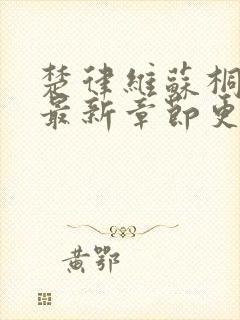 楚律維蘇桐
最新章節更
黃鄂